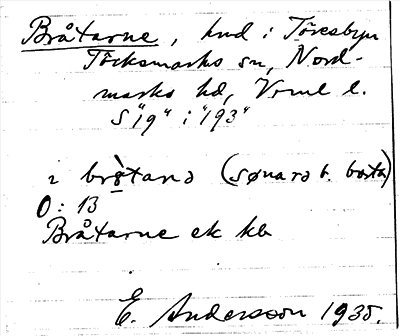 Bråtarne, hmd i Töresbyn
Töcksmarks sn, Nord-
marks hd, Vrml l.
S "19" i "193"
i brötanə (sønarə b. borta)
O: 13
Bråtarne ek kb
E. Andersson 1935.